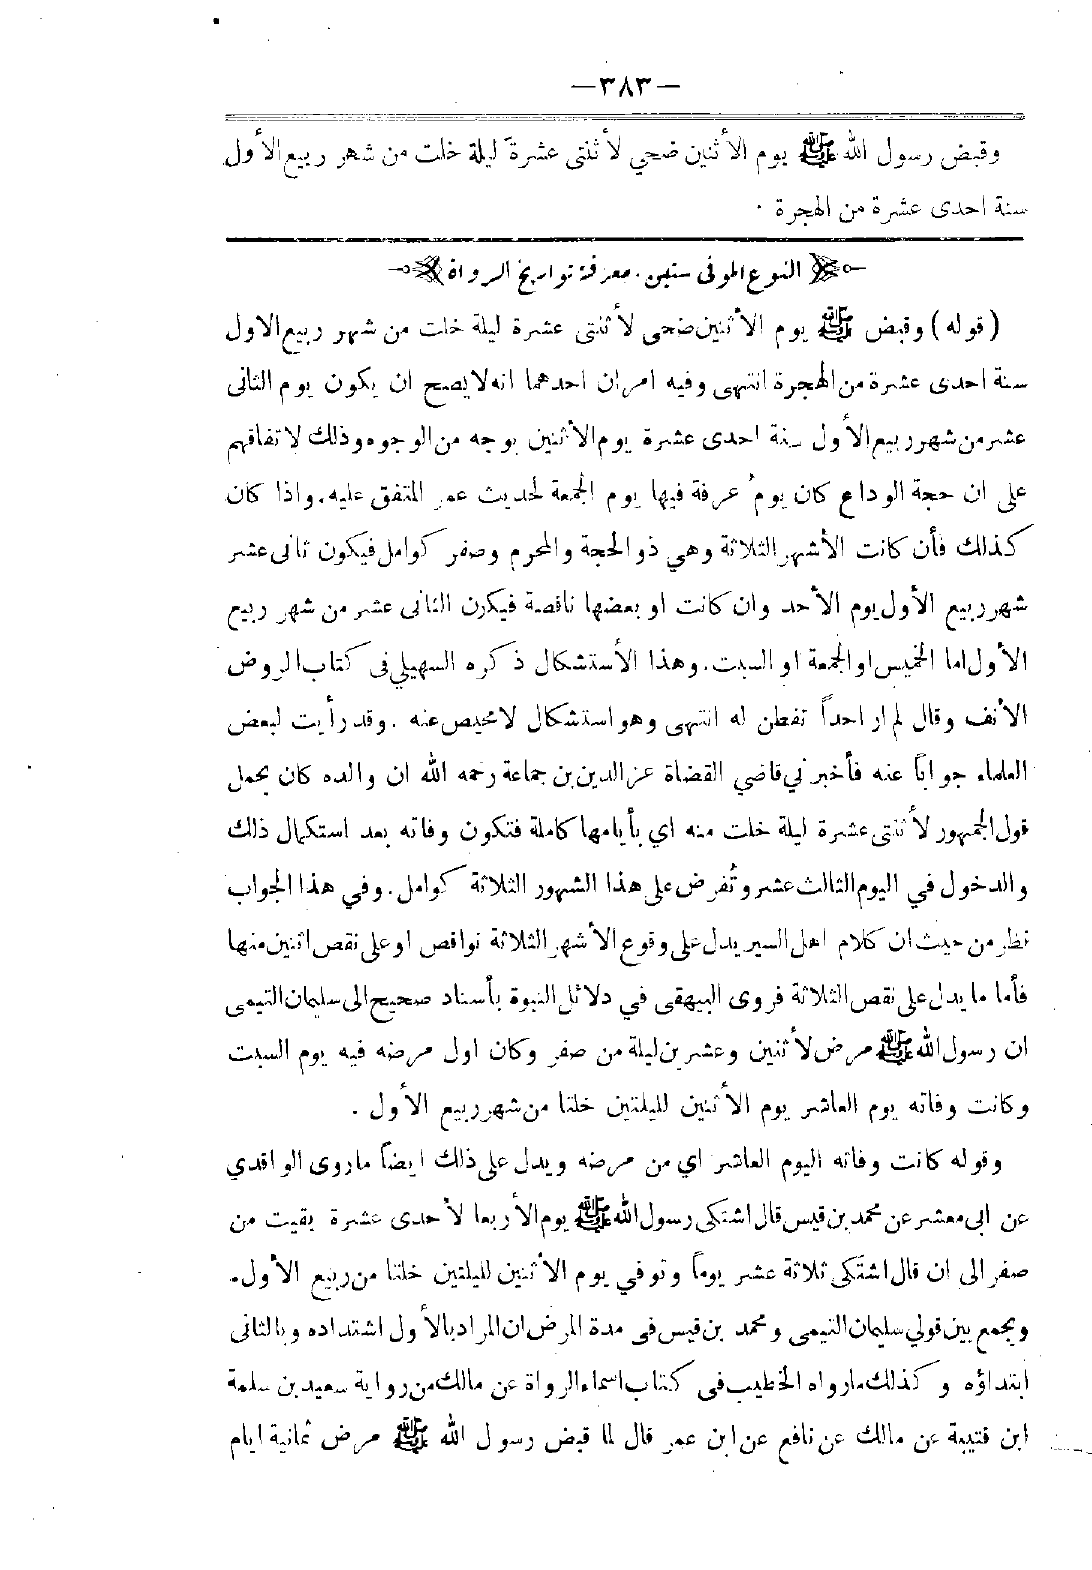 —٣٨٣—
وقبض رسول الله ﷺ يوم الأثنين ضحي لأثنتى عشرة ليلة خلت من شهر ربيع الأول
سنة احدى عشرة من الهجرة .
النوع الموفى ستين . معرفة تواريخ الرواة
( قوله ) وقبض ﷺ يوم الأثنين ضحى لأثنتى عشرة ليلة خلت من شهر ربيع الاول
سنة احدى عشرة من الهجرة انتهى وفيه امران احدهما انه لا يصح ان يكون يوم الثانى
عشر من شهر ربيع الأول سنة احدى عشرة يوم الأثنين بوجه من الوجوه وذلك لا تفاقهم
على ان حجة الوداع كان يوم عرفة فيها يوم الجمعة لحديث عمر المتفق عليه . واذا كان
كذلك فأن كانت الأشهر الثلاثة وهي ذو الحجة والمحرم وصفر كوامل فيكون ثانى عشر
شهر ربيع الأول يوم الأحد وان كانت او بعضها ناقصة فيكرن الثانى عشر من شهر ربيع
الأول اما الخميس او الجمعة او السبت . وهذا الأستشكال ذكره السهيلي فى كتاب الروض
الأنف وقال لم ار احداً تفطن له انتهى وهو استشكال لا محيص عنه . وقد رأيت لبعض
العلماء جواباً عنه فأخبرني قاضي القضاة عز الدين بن جماعة رحمه الله ان والده كان يحمل
قول الجمهور لأثنتى عشرة ليلة خلت منه اي بأيامها كاملة فتكون وفاته بعد استكمال ذلك
والدخول في اليوم الثالث عشر وتُفرض على هذا الشهور الثلاثة كوامل . وفي هذا الجواب
نظر من حيث ان كلام اهل السير يدل على وقوع الأشهر الثلاثة نواقص او على نقص اثنين منها
فأما ما يدل على نقص الثلاثة فروى البيهقى في دلائل النبوة بأسناد صحيح الى سليمان التيمى
ان رسول الله ﷺ مرض لأثنين وعشرين ليلة من صفر وكان اول مرضه فيه يوم السبت
وكانت وفاته يوم العاشر يوم الأثنين لليلتين خلتا من شهر ربيع الأول .
وقوله كانت وفاته اليوم العاشر اي من مرضه ويدل على ذلك ايضاً ما روى الواقدي
عن ابى معشر عن محمد بن قيس قال اشتكى رسول الله ﷺ يوم الأربعا لأحدى عشرة بقيت من
صفر الى ان قال اشتكى ثلاثة عشر يوماً وتوفي يوم الأثنين لليلتين خلتا من ربيع الأول .
ويجمع بين قولي سليمان التيمى ومحمد بن قيس فى مدة المرض ان المراد بالأول اشتداده وبالثانى
ابتداؤه وكذلك مارواه الخطيب فى كتاب اسماء الرواة عن مالك من رواية سعيد بن سلمة
ابن قتيبة عن مالك عن نافع عن ابن عمر قال لما قبض رسول الله ﷺ مرض ثمانية ايام